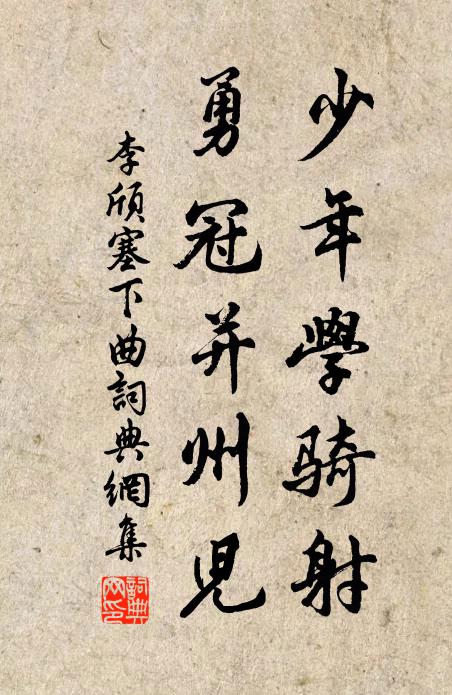 少年學騎射
勇冠并州兒
李頎塞下曲詞典網集
詞典
网印